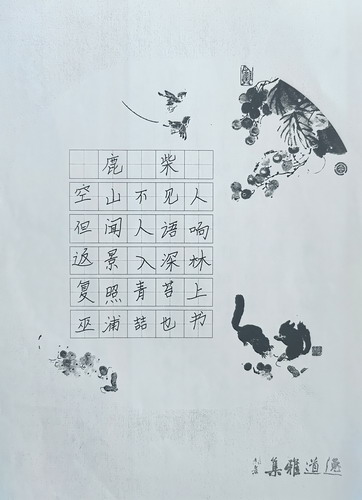 鹿柴
空山不见人
但闻人语响
返景入深林
复照青苔上
巫浦喆也书
道雅集